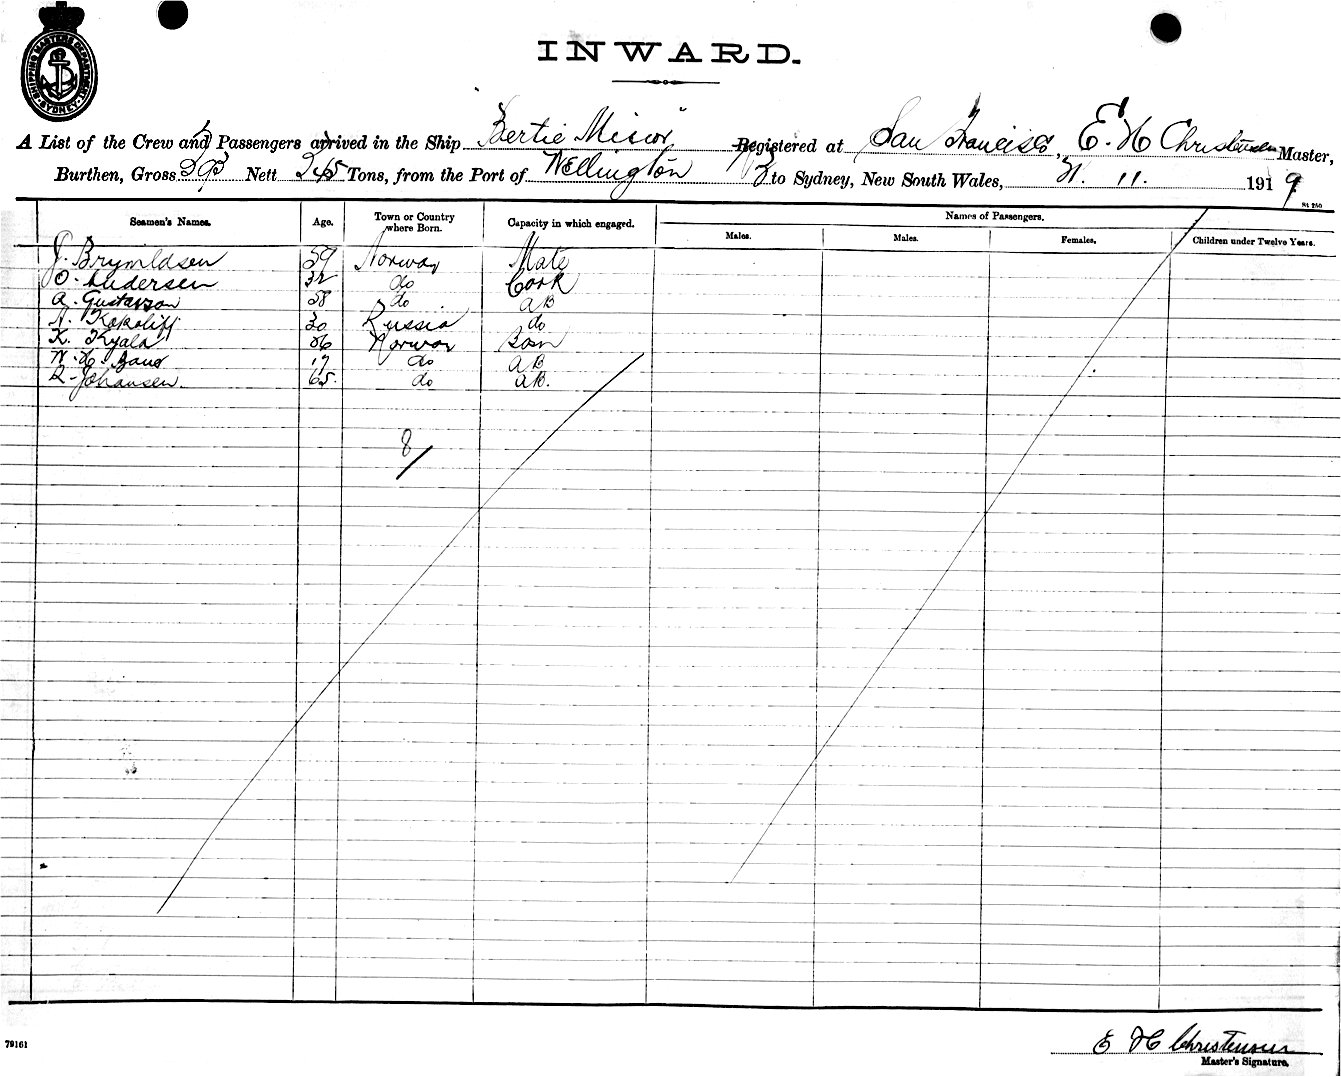 SHIPPING MASTERS DEPARTMENT SYDNEY
INWARD.
A List of the Crew and Passengers arrived in the Ship "Bertie Minor" Registered at San Francisco, E. H Christensen Master,
Burthen, Gross Nett 245 Tons, from the Port of Wellington NZ to Sydney, New South Wales, 11. 1919
St 250
Seamen's Names. Age. Town or Country where Born. Capacity in which engaged. Names of Passengers.
Males. Males. Females. Children under Twelve Years.
J. Brynildsen 59 Norway Mate
O. Andersen 32 do Cook
A. Gustavson 58 do AB
30 Russia do
K. Kyala Norway Bosn
17 do AB
Johansen 65. do AB.
8/
E H Christensen
79161
Master's Signature.